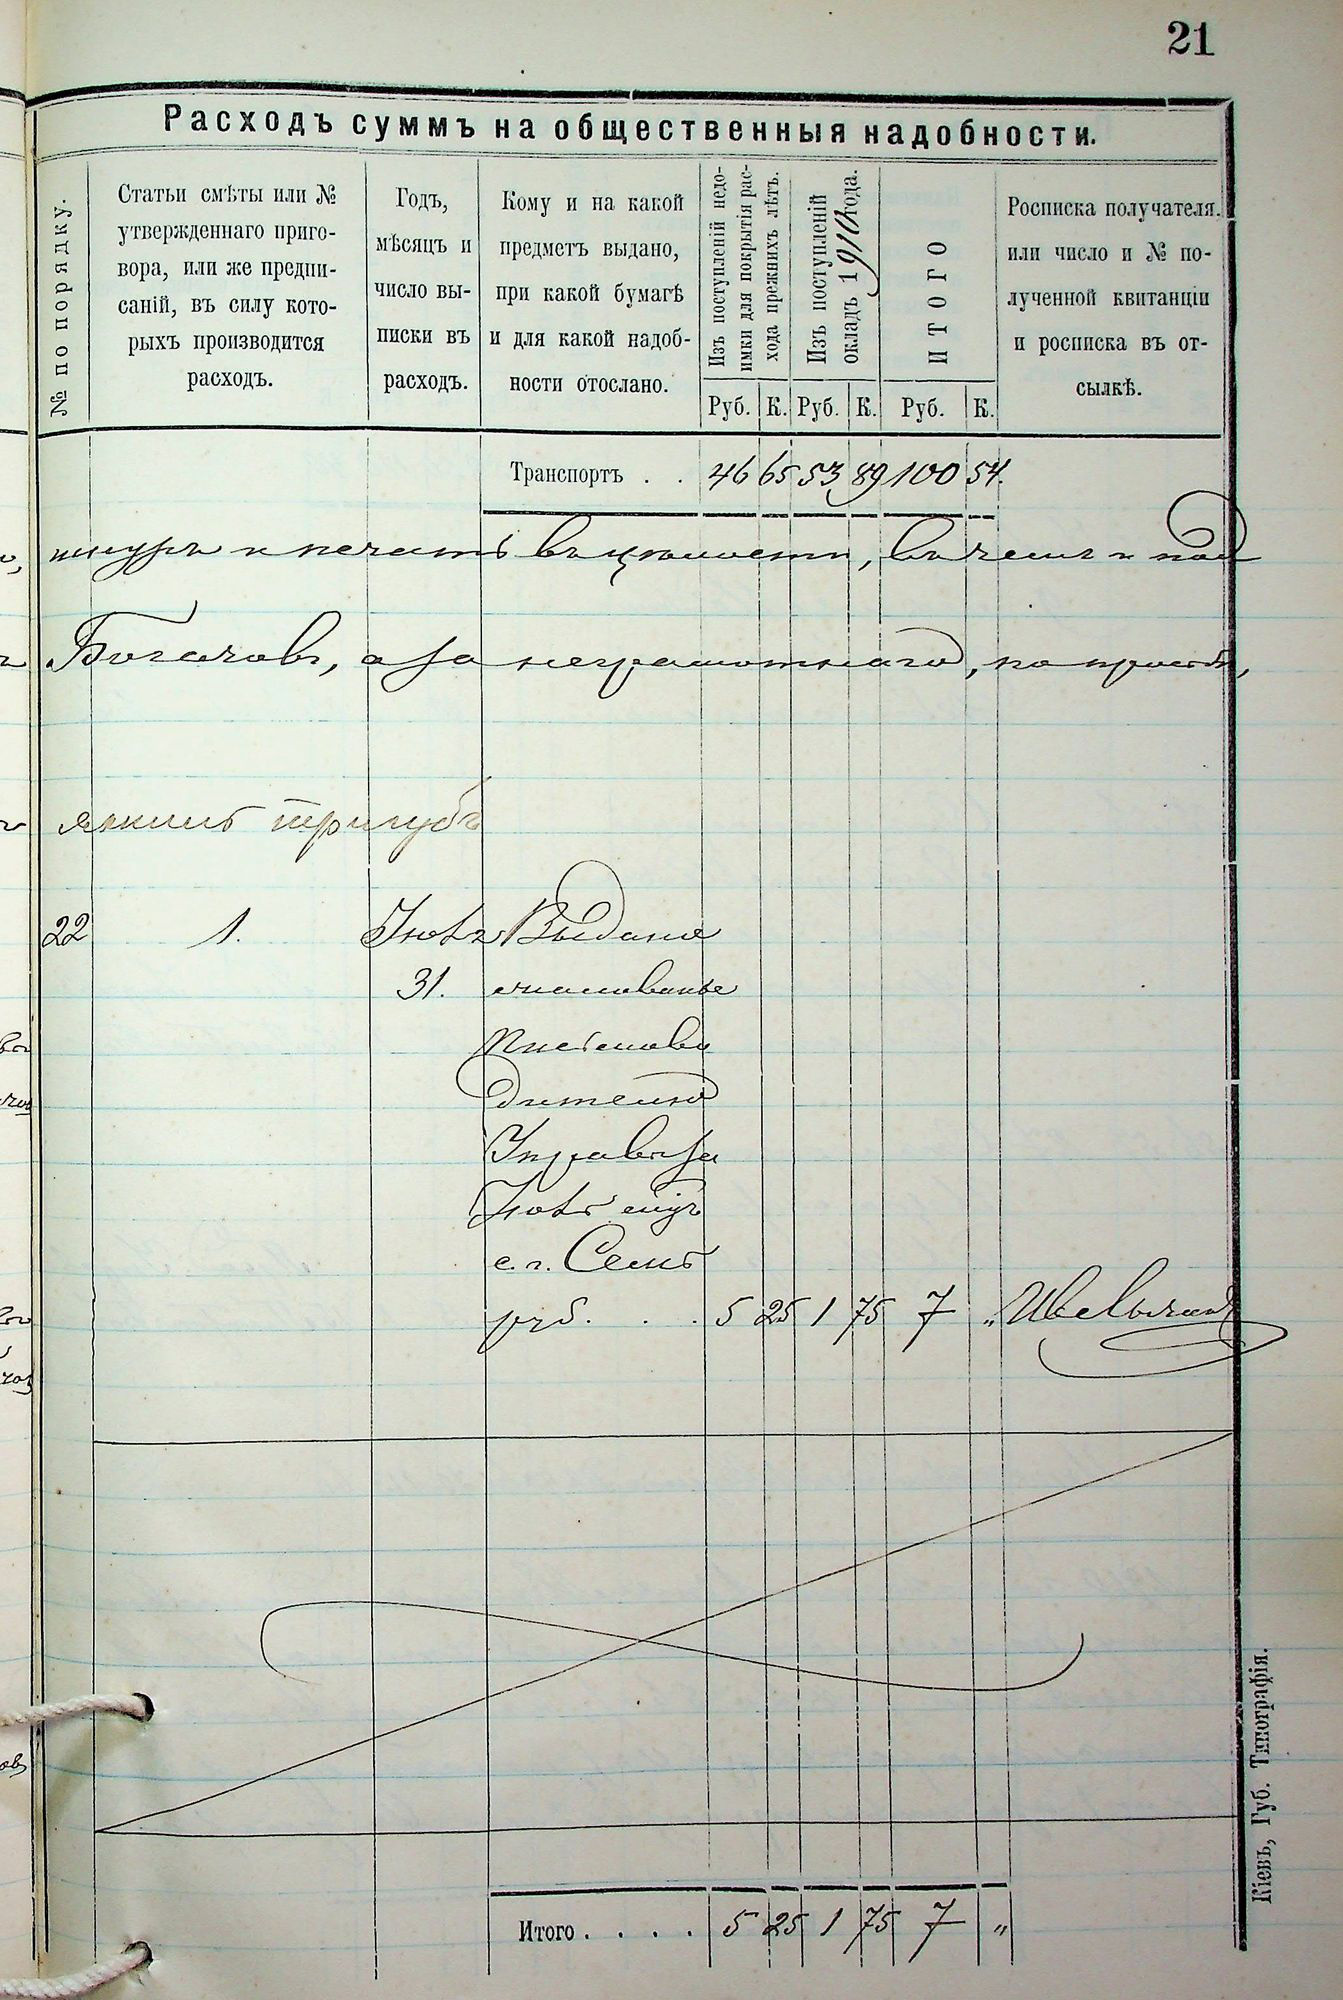 21
Расходъ суммъ на общественныя надобности.
№ по порядку.
Статьи смѣты или №
утвержденнаго приго-
вора, или же предпи-
саній, въ силу кото-
рыхъ производится
расходъ.
Годъ,
мѣсяцъ и
число вы-
писки въ
расходъ.
Кому и на какой
предметъ выдано,
при какой бумагѣ
и для какой надоб-
ности отослано.
Изъ поступленій недо-
имки для покрытія рас-
хода прежнихъ лѣтъ.
Изъ поступленій
окладъ 1910 года.
ИТОГО
Росписка получателя.
или число и № по-
лученной квитанціи
и росписка въ от-
сылкѣ.
Руб. К. Руб. К. Руб. К.
Транспортъ . . 46 65 53 89 100 54.
шнуръ и печать въ цѣлости, въ чемъ и под
Богачовъ, а за неграмотнаго, по просьбѣ,
22 1. Выдано
31.
за
с. г. Семь
руб. . . . 5 25 1 75 7 „
Итого . . . . 5 25 1 75 7 „
Кіевъ, Губ. Типографія.